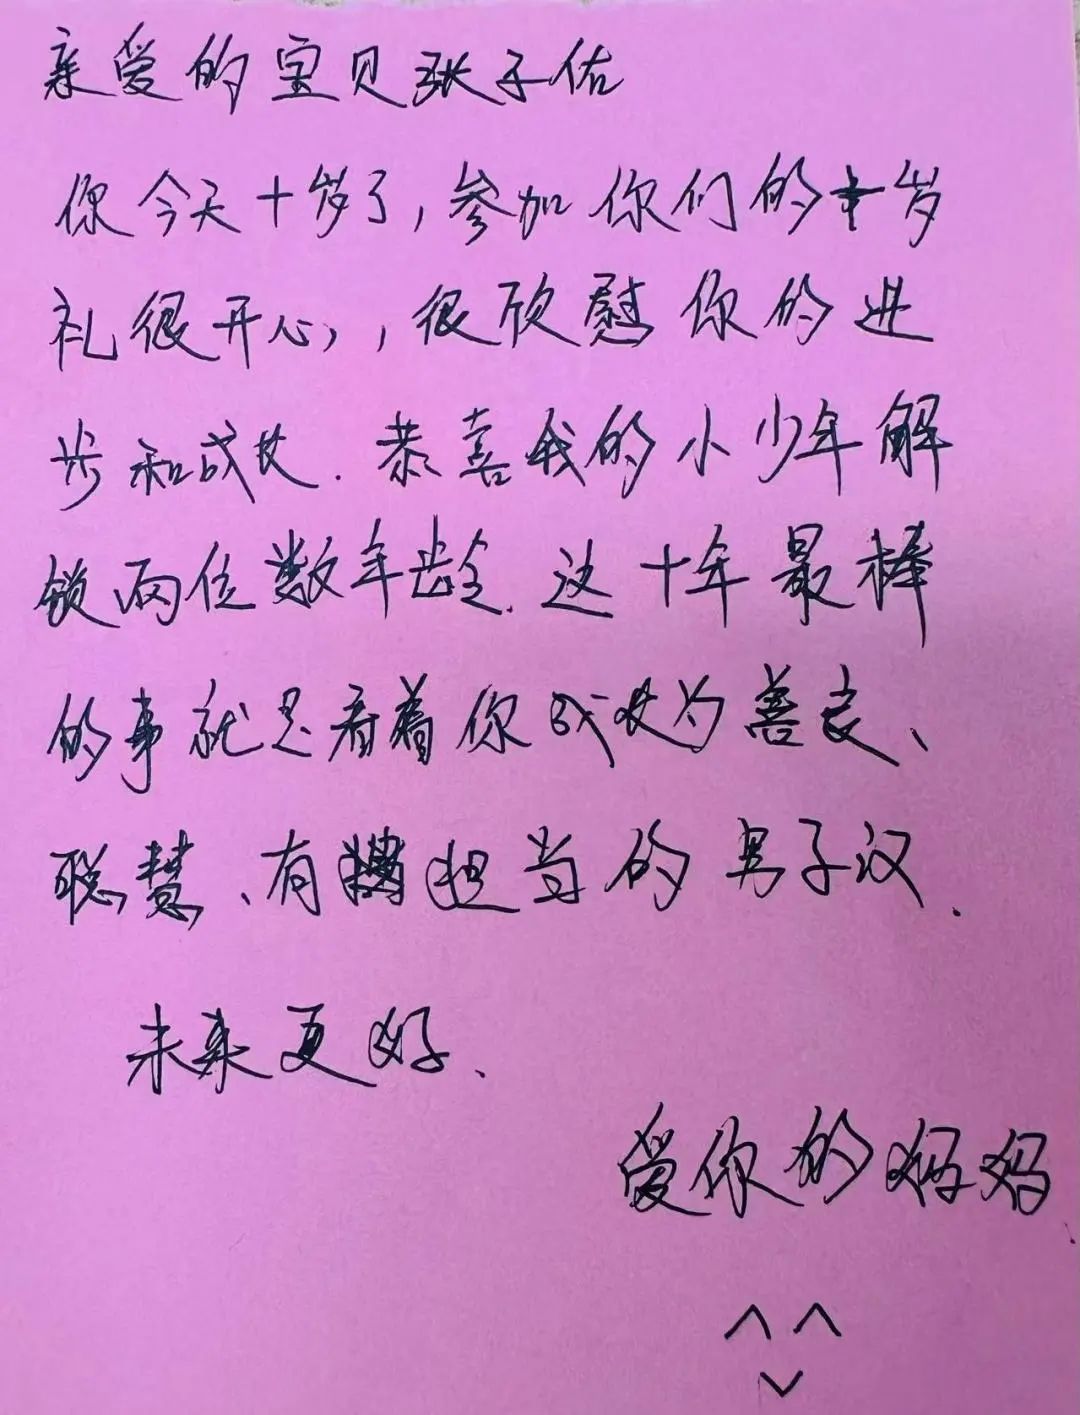 亲爱的宝贝张子佑
你今天十岁了,参加你们的十岁
礼很开心,,很欣慰你的进
步和成长.恭喜我的小少年解
锁两位数年龄.这十年最棒
的事就是看着你成长为善良、
聪慧、有担当的男子汉.
未来更好、
爱你的妈妈.
^ ^